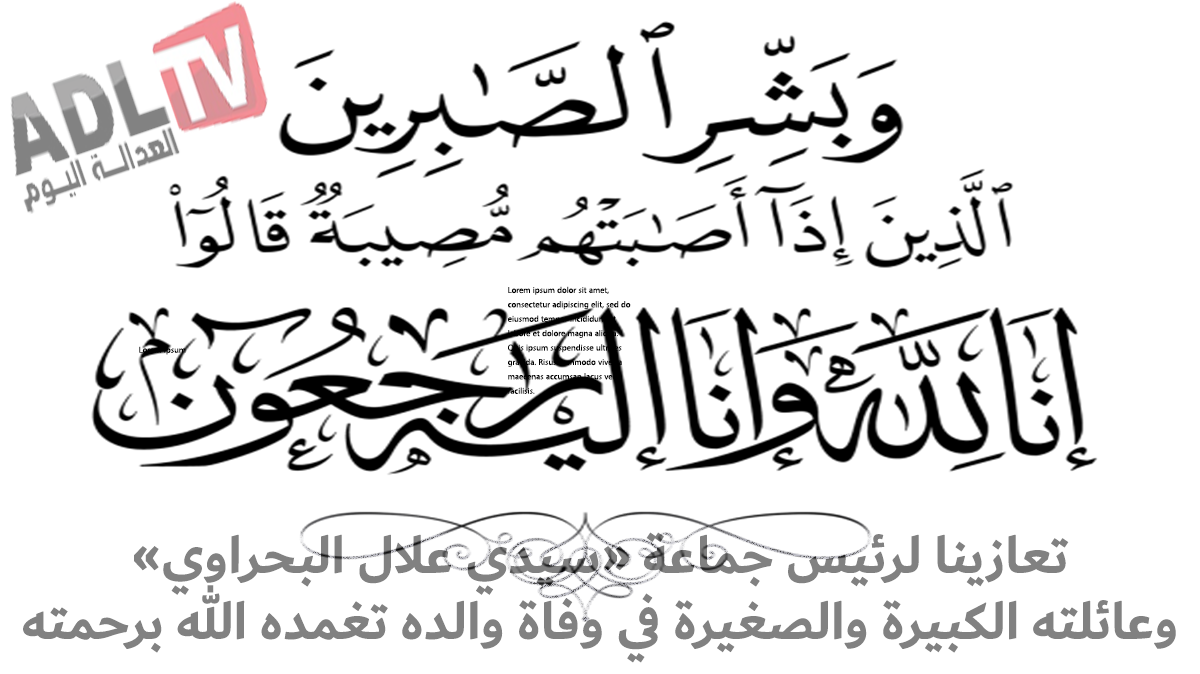 ADL TV
العدالة اليوم
وَبَشِّرِ ٱلصَّـٰبِرِينَ
ٱلَّذِينَ إِذَآ أَصَـٰبَتْهُم مُّصِيبَةٌ قَالُوٓا۟
إنا لله وإنا إليه راجعون
Lorem ipsum dolor sit amet,
consectetur adipiscing elit, sed do
eiusmod tempor incididunt
labore et dolore magna aliqua.
Quis ipsum suspendisse ultrices
gravida. Risus commodo viverra
maecenas accumsan lacus vel
facilisis.
Lorem ipsum
تعازينا لرئيس جماعة «سيدي علال البحراوي»
وعائلته الكبيرة والصغيرة في وفاة والده تغمده الله برحمته